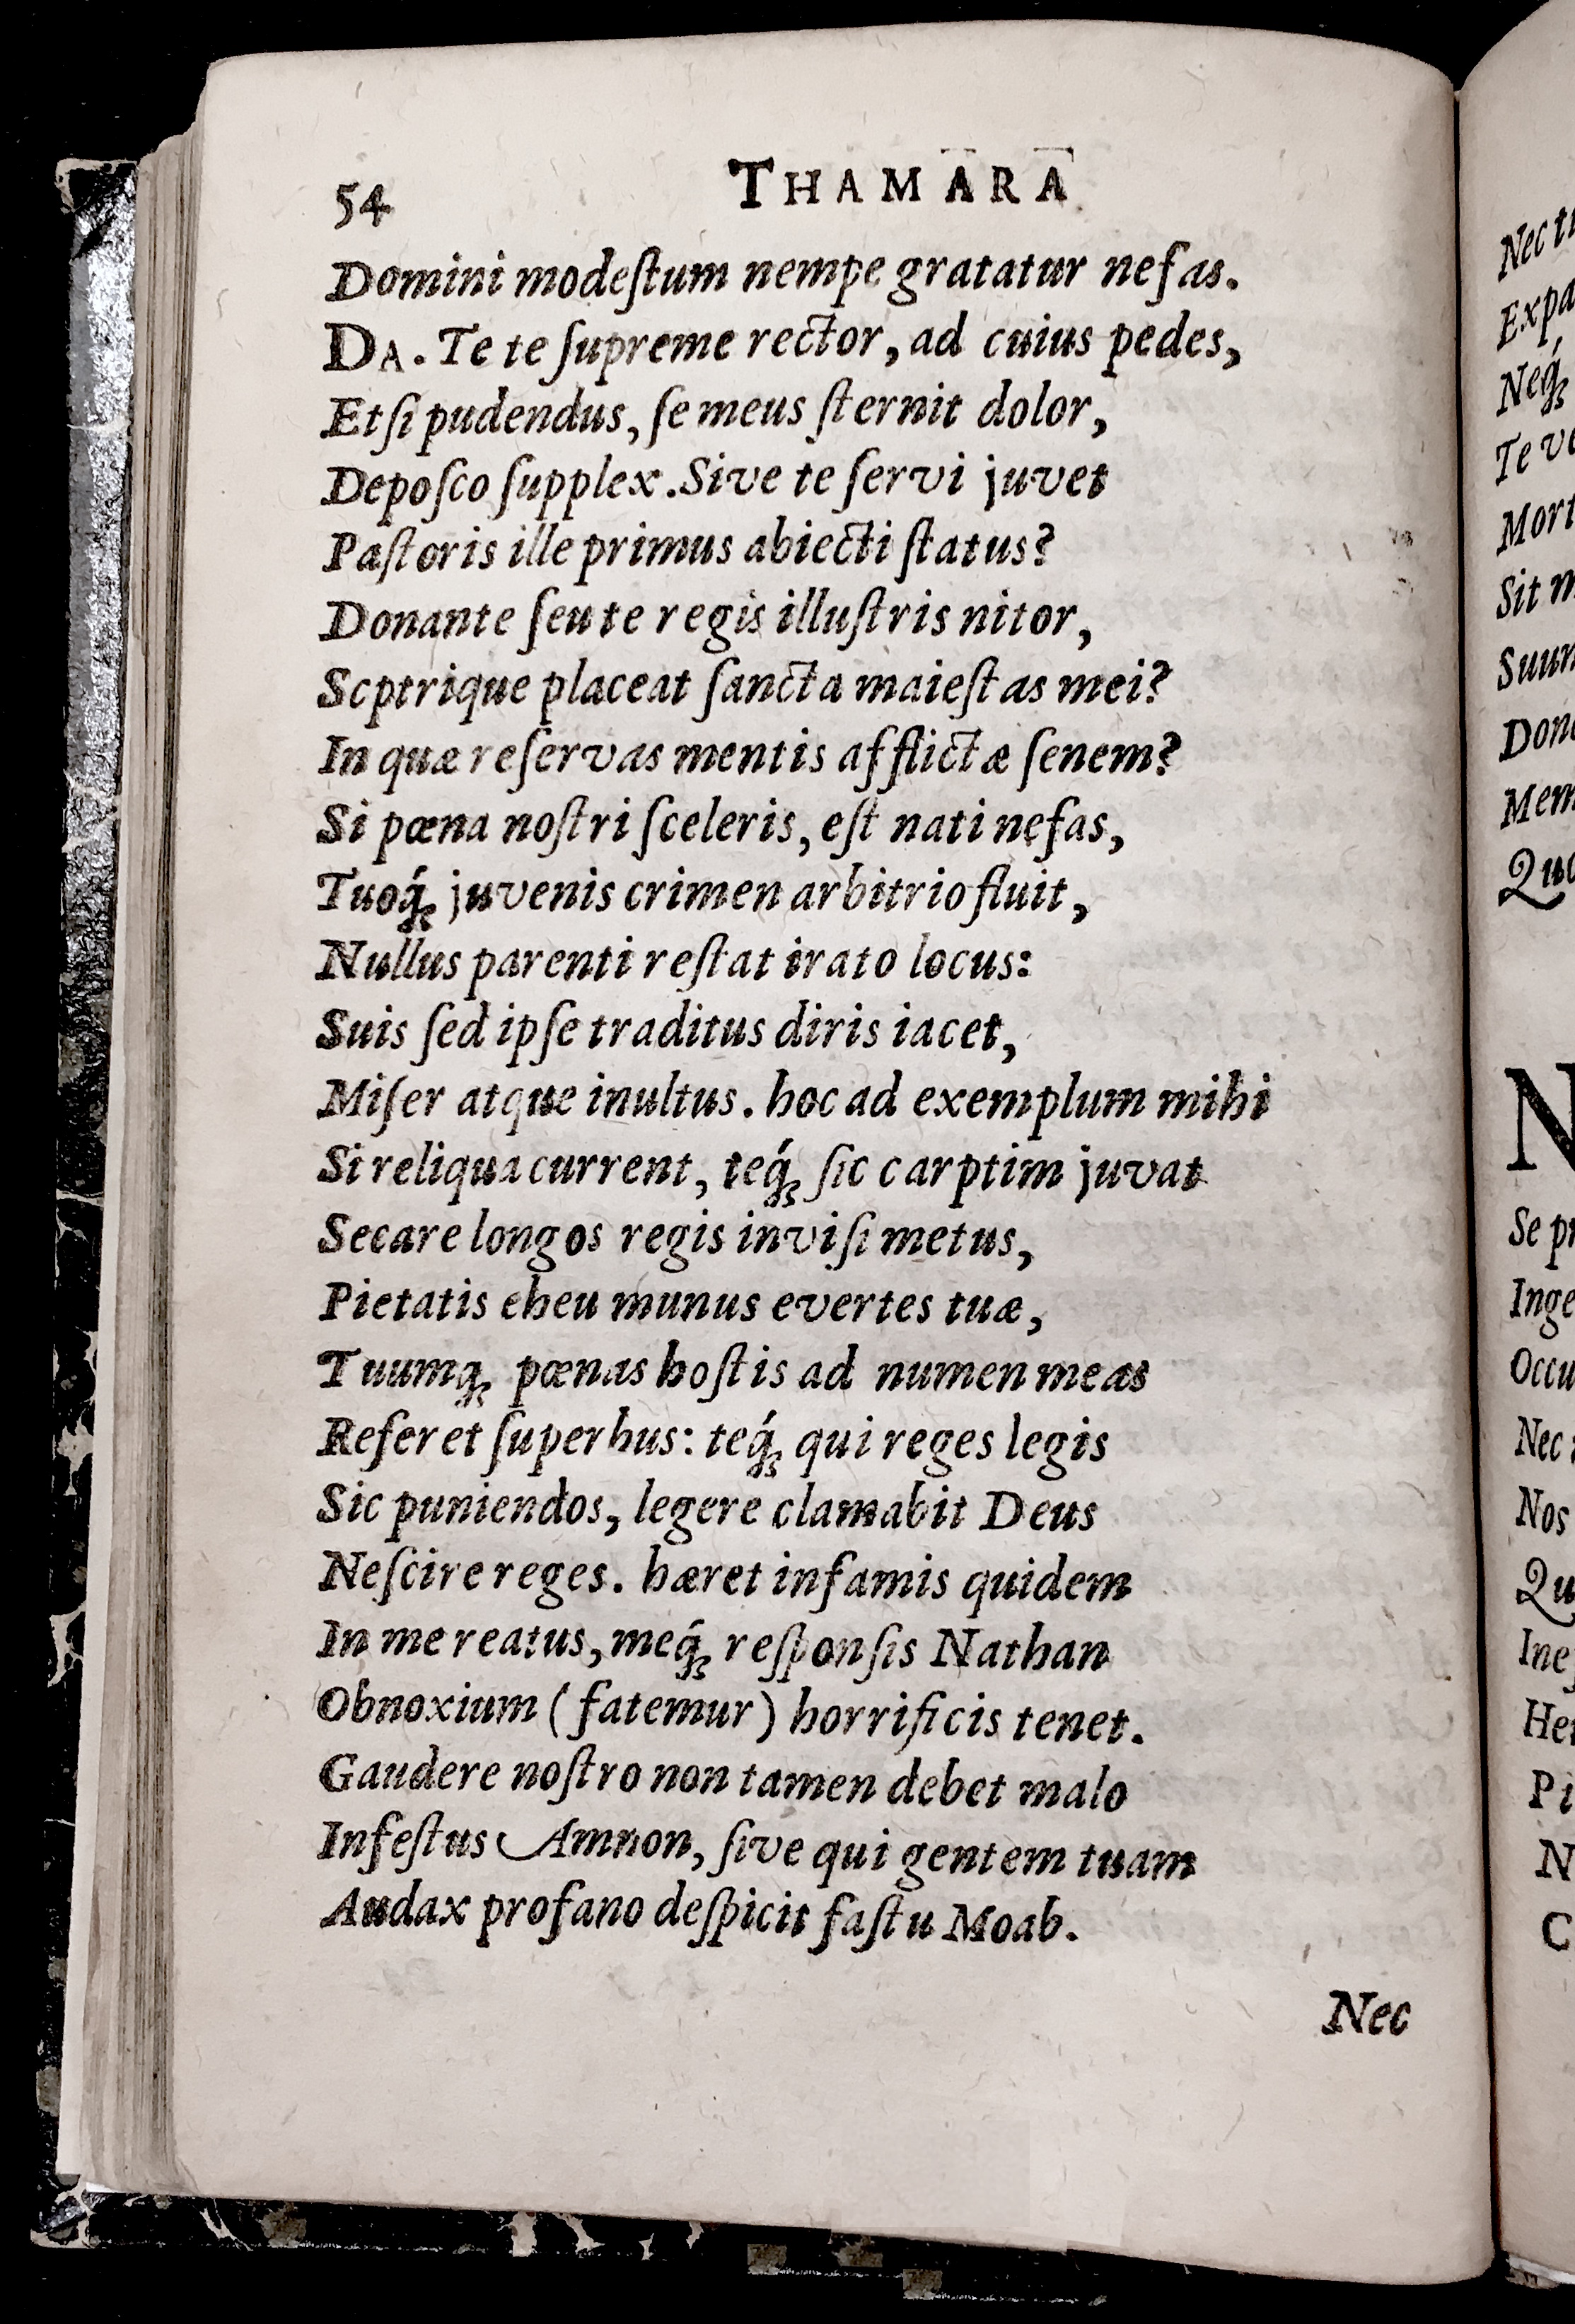 54
THAMARA
Domini modeſtum nempe gratatur nefas.
DA. Te te ſupreme rector, ad cuius pedes,
Etſi pudendus, ſe meus ſternit dolor,
Depoſco ſupplex. Sive te ſervi juvet
Paſtoris ille primus abiecti ſtatus?
Donante ſeu te regis illuſtris nitor,
Scptrique placeat ſancta maieſtas mei?
In quæ reſervas mentis afflictæ ſenem?
Si pœna noſtri ſceleris, eſt nati nefas,
Tuoq́; juvenis crimen arbitrio fluit,
Nullus parenti reſtat irato locus:
Suis ſed ipſe traditus diris iacet,
Miſer atque inultus. hoc ad exemplum mihi
Si reliqua current, teq́; ſic carptim juvat
Secare longos regis inviſi metus,
Pietatis eheu munus evertes tuæ,
Tuumq; pœnas hoſtis ad numen meas
Referet ſuperbus: teq́; qui reges legis
Sic puniendos, legere clamabit Deus
Neſcire reges. hæret infamis quidem
In me reatus, meq́; reſponſis Nathan
Obnoxium (fatemur) horrificis tenet.
Gaudere noſtro non tamen debet malo
Infeſtus Amnon, ſive qui gentem tuam
Audax profano deſpicit faſtu Moab.
Nec
Nec
Expa
Neq́;
Te
Mort
Sit
Suum
Done
Mem
N
Se
Inge
Occu
Nec
Nos
Qu
Pi
N
C